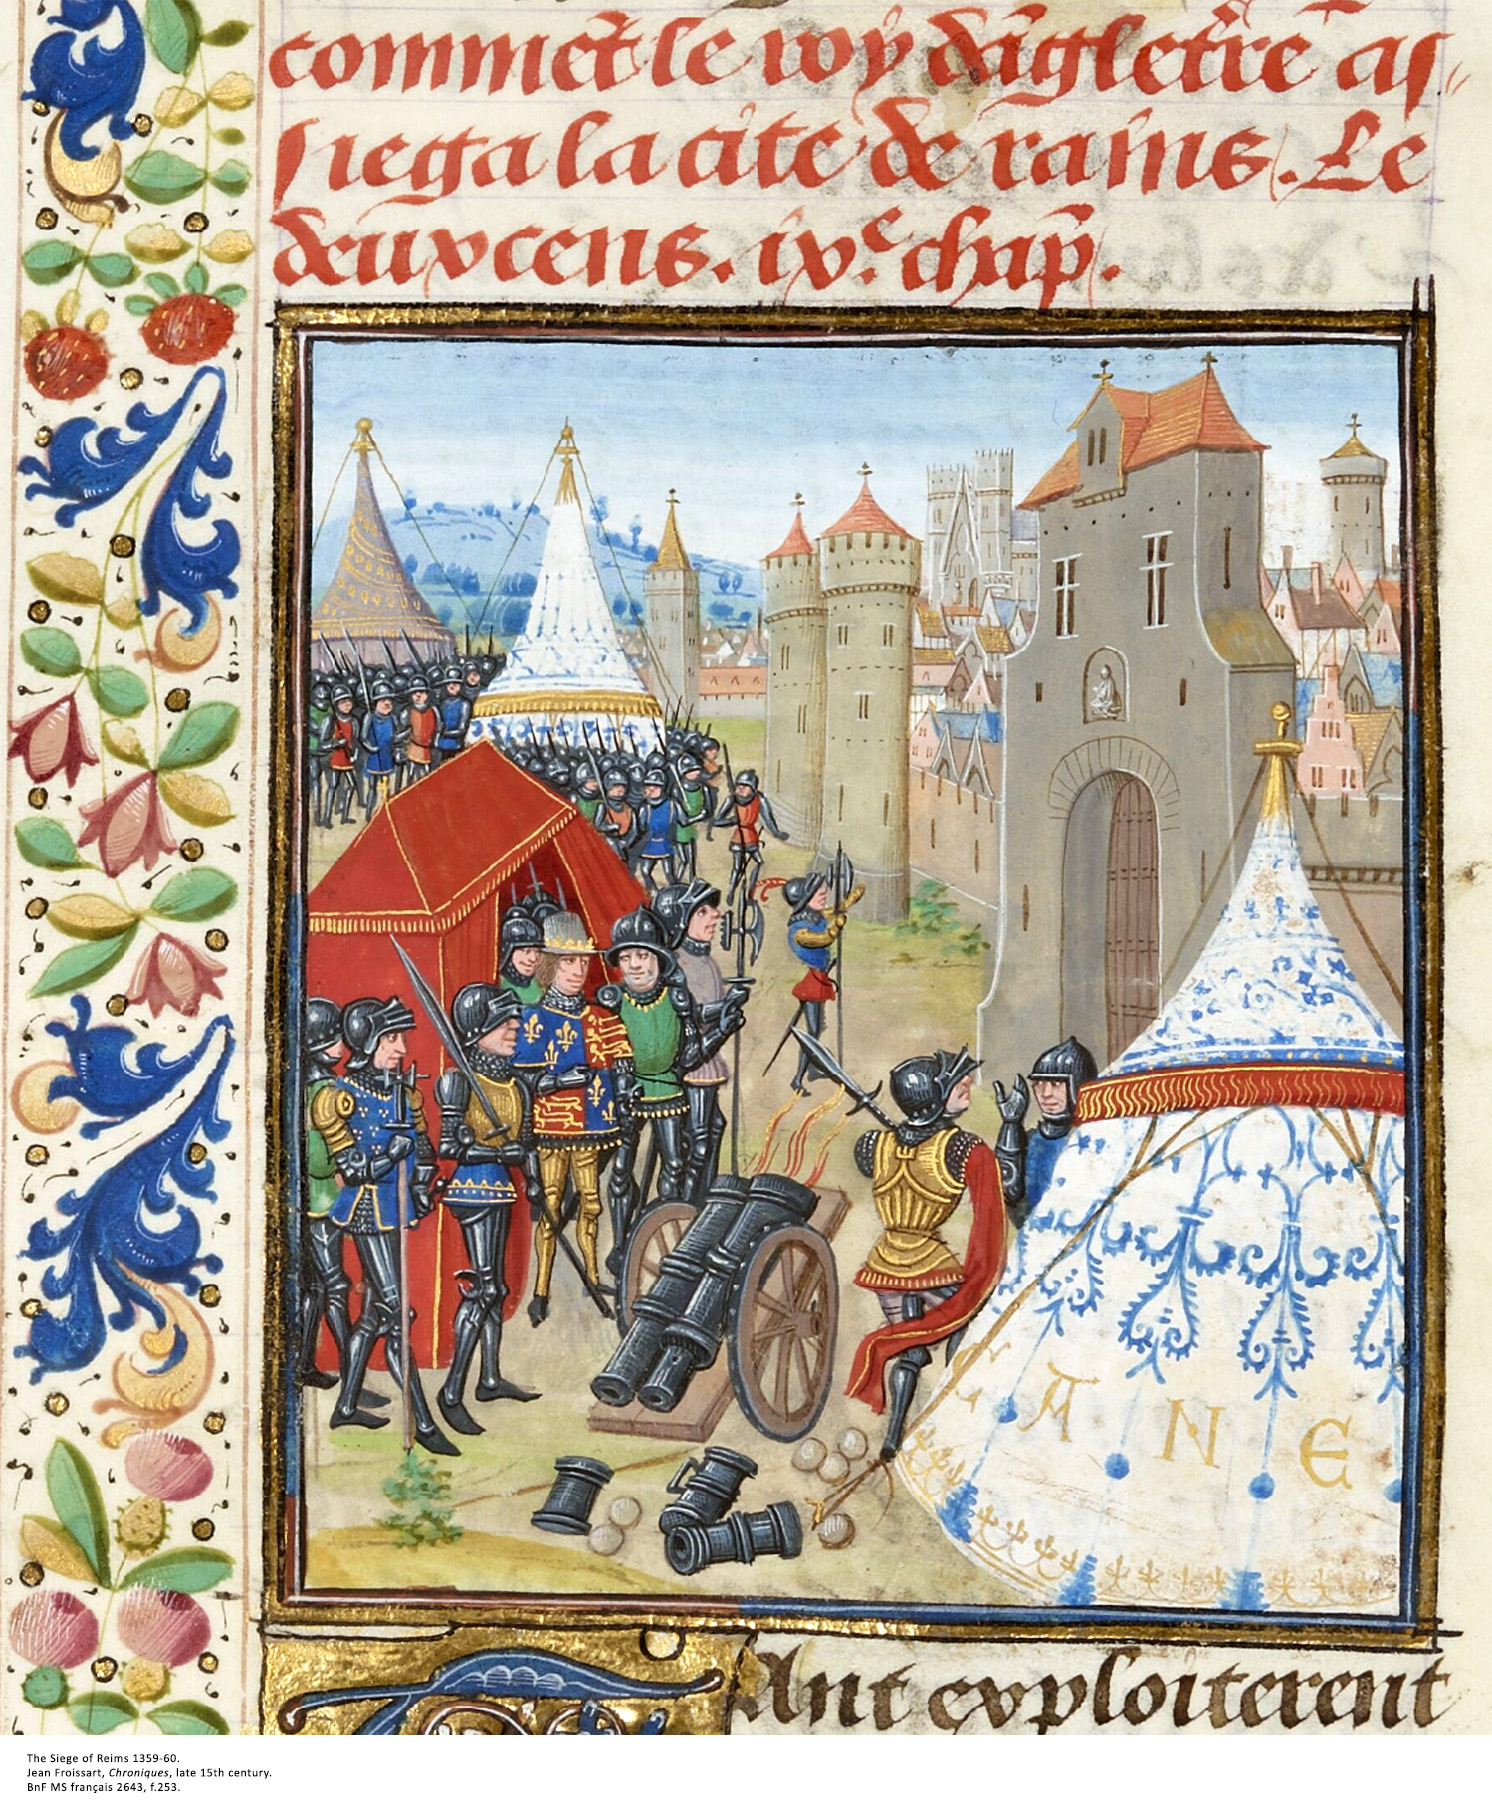 commēt le roy dāgletr̄e as
siega la cite de rains. Le
deuxcens. ixe. chap̄.
A N E
Ant exploiterent
The Siege of Reims 1359-60.
Jean Froissart, Chroniques, late 15th century.
BnF MS français 2643, f.253.